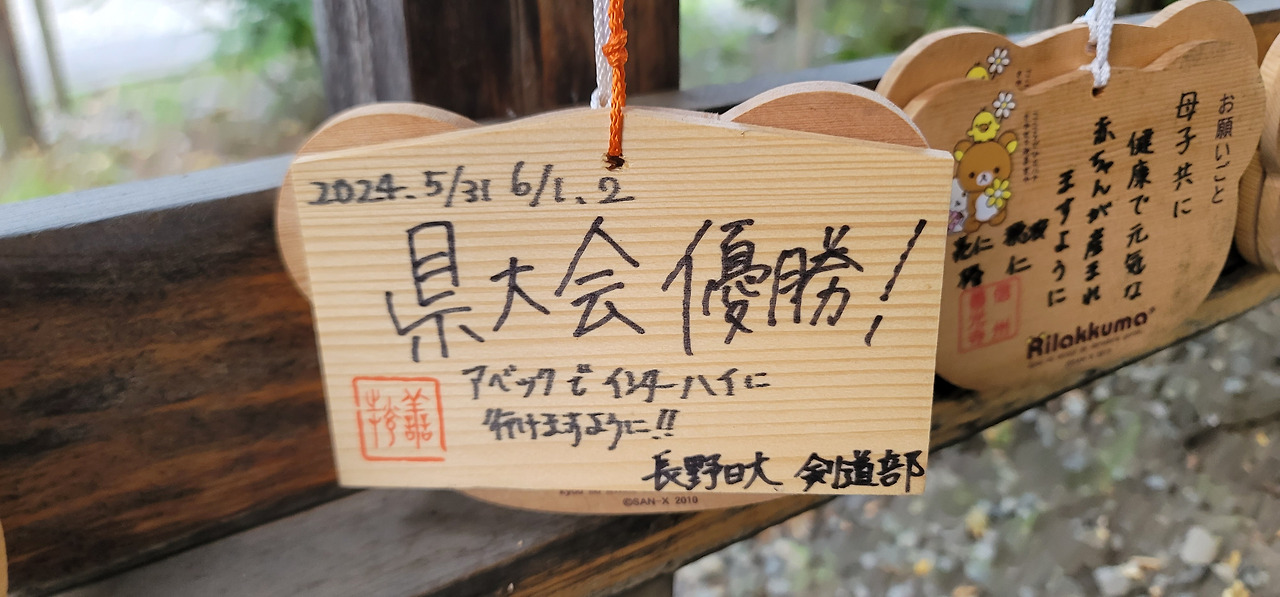 2024.5/31 6/1.2
県大会優勝!
アベックでインターハイに
行けますように!!
長野日大 剣道部
©SAN-X 2010
お願いごと
母子共に
健康で元気な
赤ちゃんが産まれ
ますように
Rilakkuma